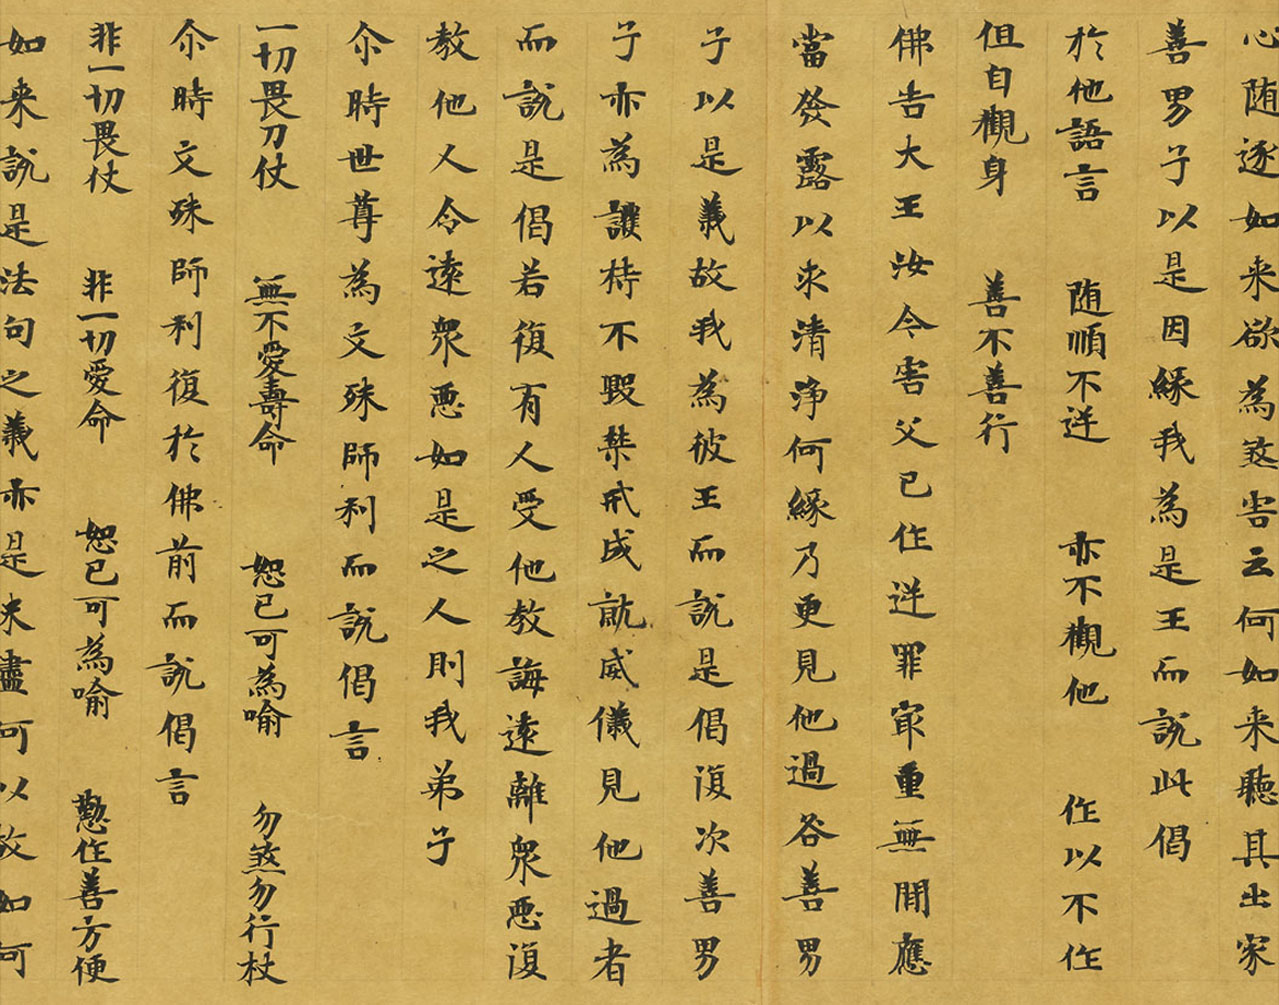 心随逐如来欲為煞害云何如来聴其出家
善男子以是因緣我為是王而說此偈
於他語言 随順不逆 亦不觀他 作以不作
但自觀身 善不善行
佛告大王汝今害父已作逆罪㝡重無間應
當發露以求清淨何緣乃更見他過咎善男
子以是義故我為彼王而說是偈復次善男
子亦為護持不毀禁戒成就威儀見他過者
而說是偈若復有人受他教誨遠離衆惡復
教他人令遠衆惡如是之人則我弟子
尒時世尊為文殊師利而說偈言
一切畏刀仗 無不愛壽命 恕已可為喻 勿煞勿行杖
尒時文殊師利復於佛前而說偈言
非一切畏仗 非一切愛命 恕已可為喻 懃作善方便
如来說是法句之義亦是未盡何以故如何